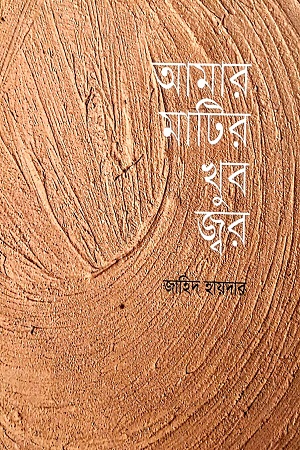 আমার
মাটির
খুব
জ্বর
জাহিদ হায়দার